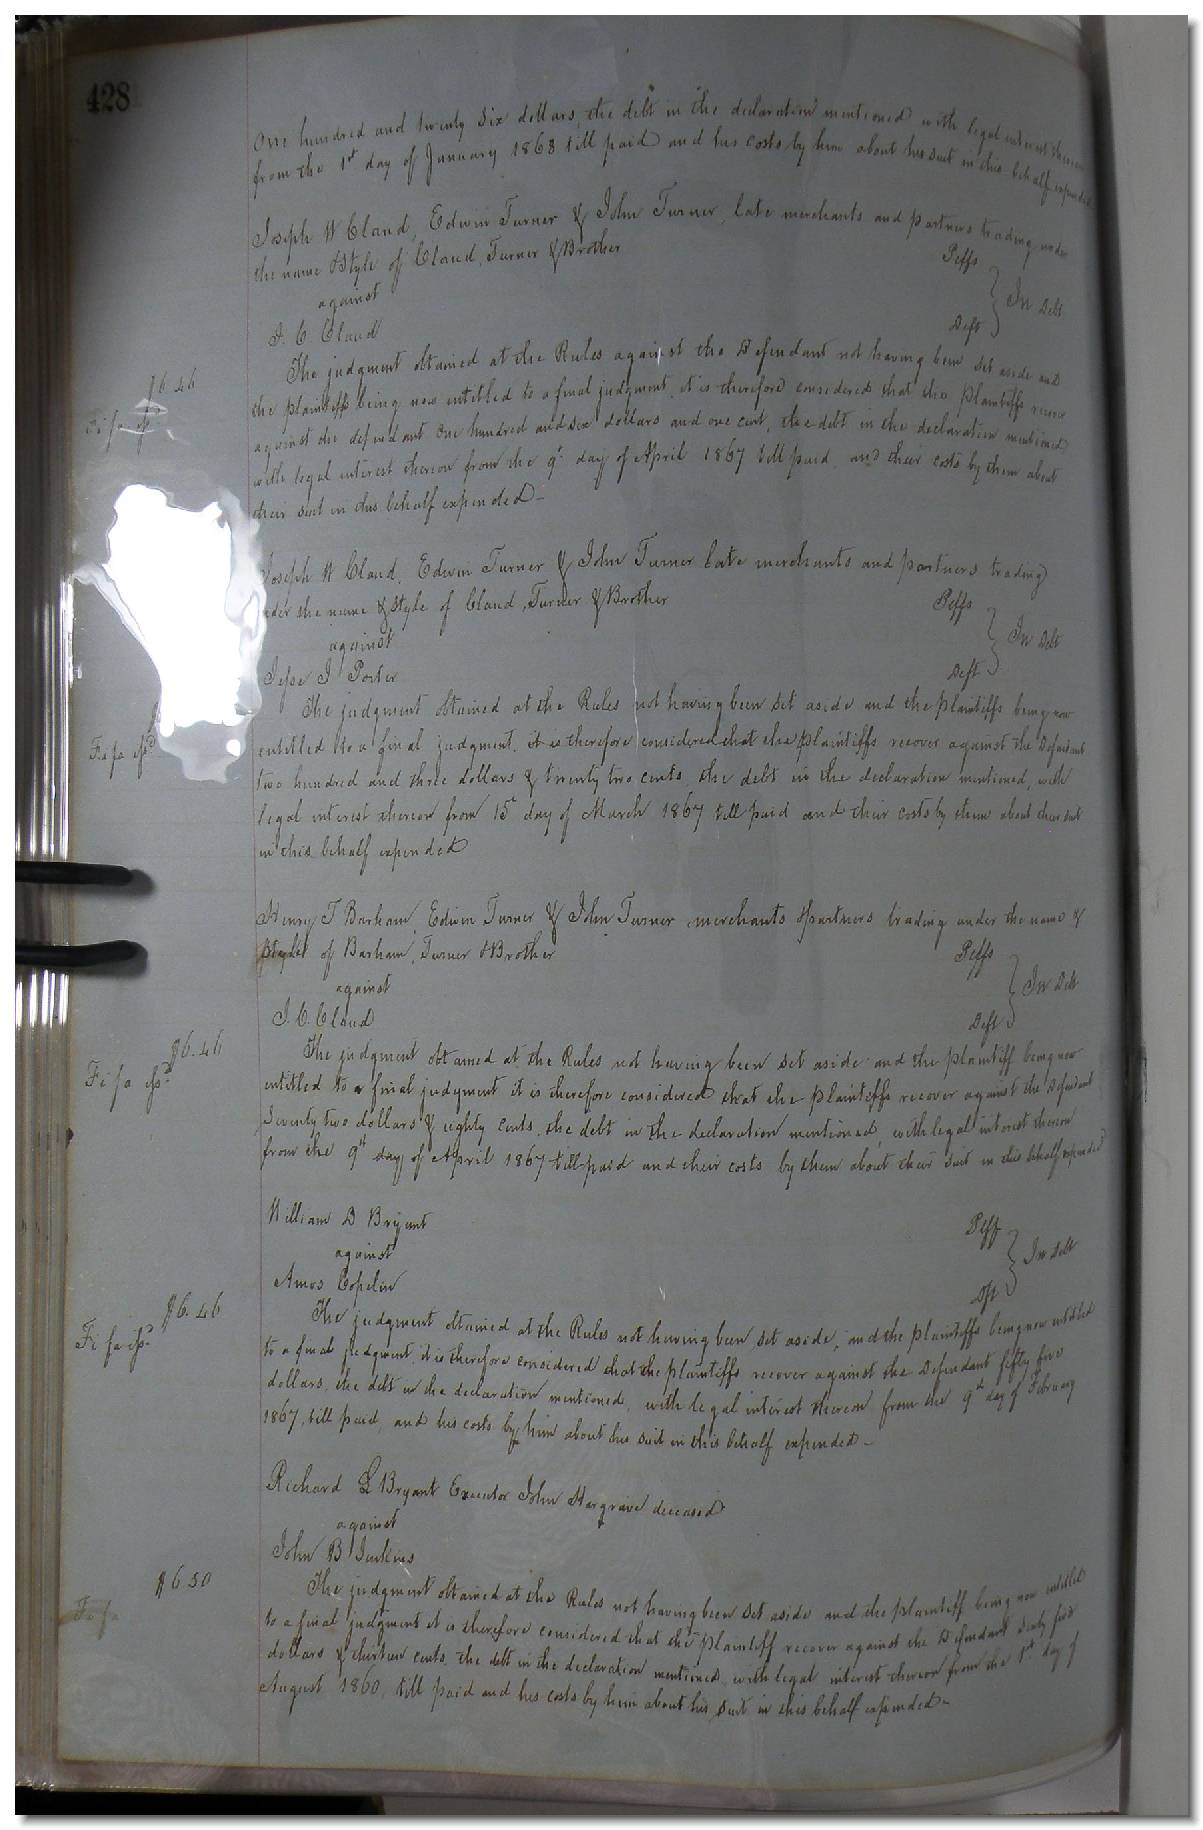 428
One hundred and twenty six dollars, the debt in the declaration mentioned with legal interest thereon
from the 1st day of January 1863 till paid and his costs by him about his suit in this behalf expended
Joseph W Claud, Edwin Turner & John Turner, late merchants and partners trading under
the name & Style of Claud, Turner & Brother Plffs
against In Debt
J. C. Claud Deft
The judgment obtained at the Rules against the Defendant not having been set aside and
$6.46 the plaintiffs being now entitled to a final judgment, it is therefore considered that the Plaintiffs recover
Fi fa against the defendant One hundred and six dollars and one cent, the debt in the declaration mentioned
with legal interest thereon from the 9th day of April 1867 till paid, and their costs by them about
their suit in this behalf expended -
Joseph W Claud, Edwin Turner & John Turner late merchants and partners trading
under the name & Style of Claud, Turner & Brother Plffs
against In Debt
Jesse J Porter Deft
The judgment obtained at the Rules not having been set aside and the plaintiffs being now
Fi fa isd entitled to a final judgment, it is therefore considered that the plaintiffs recover against the Defendant
two hundred and three dollars & twenty two cents, the debt in the declaration mentioned, with
legal interest thereon from 15th day of March 1867 till paid and their costs by them about their suit
in this behalf expended
Henry T Barham, Edwin Turner & John Turner, merchants & partners trading under the name &
style of Barham, Turner & Brother Plffs
against In Debt
J. C. Claud Deft
$6.46 The judgment obtained at the Rules not having been set aside and the plaintiff being now
Fi fa isd entitled to a final judgment it is therefore considered that the plaintiffs recover against the Defendant
Seventy two dollars & eighty cents, the debt in the declaration mentioned, with legal interest thereon
from the 9th day of April 1867 till paid and their costs by them about their suit in this behalf expended
William D Bryant Plff
against In Debt
Amos Copelin Dft
$6.46 The judgment obtained at the Rules not having been set aside, and the plaintiffs being now entitled
Fi fa isd to a final judgment, it is therefore considered that the plaintiffs recover against the Defendant fifty five
dollars, the debt in the declaration mentioned, with legal interest thereon from the 9th day of February
1867, till paid, and his costs by him about his suit in this behalf expended -
Richard L Bryant Executor John Hargrave deceased
against
John B Jenkins
$6.50 The judgment obtained at the Rules not having been set aside and the plaintiff being now entitled
Fi fa to a final judgment it is therefore considered that the plaintiff recover against the Defendant Sixty five
dollars & thirteen cents, the debt in the declaration mentioned, with legal interest thereon from the 1st day of
August 1860, till paid and his costs by him about his suit in this behalf expended -